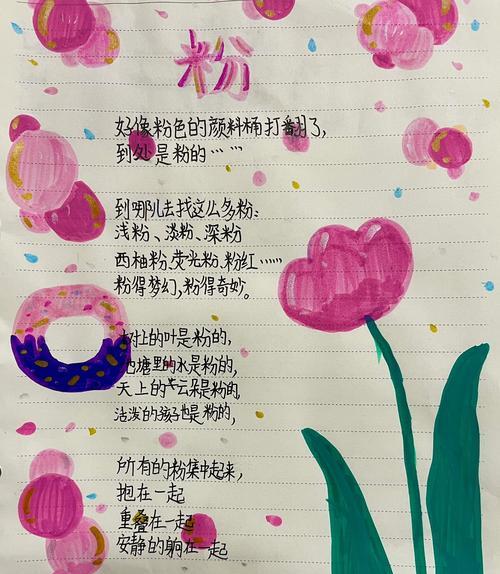 粉
好像粉色的颜料桶打翻了,
到处是粉的……
到哪儿去找这么多粉:
浅粉、淡粉、深粉
西柚粉、荧光粉、粉红……
粉得梦幻,粉得奇妙。
树上的叶是粉的,
池塘里的水是粉的,
天上的云朵是粉的
活泼的孩子也是粉的,
所有的粉集中起来,
抱在一起
重叠在一起
安静的躺在一起